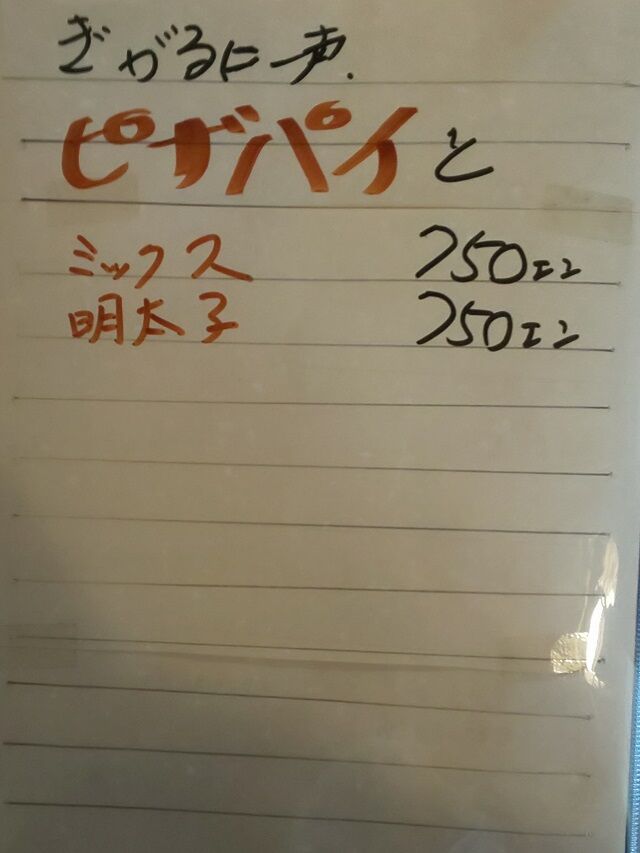 きがるに一声.
ピザパイと
ミックス 750エン
明太子 750エン